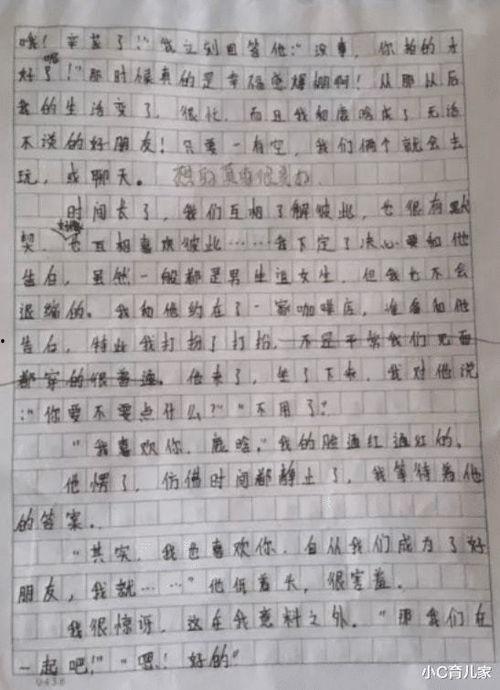 哦！辛苦了！”我立刻回答他：“没事，你拍的太
好了喔！”那时候真的是幸福感爆棚啊！从那以后
我的生活变了，很忙，而且我和鹿晗成了无话
不谈的好朋友！只要一有空，我们俩个就会去
玩，或聊天。
时间长了，我们互相了解彼此，也很有默
契，也互相喜欢彼此……我下定了决心要和他
告白，虽然一般都是男生追女生，但我也不会
退缩的。我和他约在了一家咖啡店，准备和他
告白，特此我打扮了打扮，不是平常我们见面
都穿的很普通。他来了，坐了下来，我对他说
：“你要不要点什么？”“不用了”
“我喜欢你，鹿晗。”我的脸通红通红的。
他愣了，仿佛时间都静止了，我等待着他
的答案。
“其实，我也喜欢你，自从我们成为了好
朋友，我就……”他低着头，很害羞。
我很惊讶，这在我意料之外。“那我们在
一起吧！”“嗯！好的”
小C育儿家